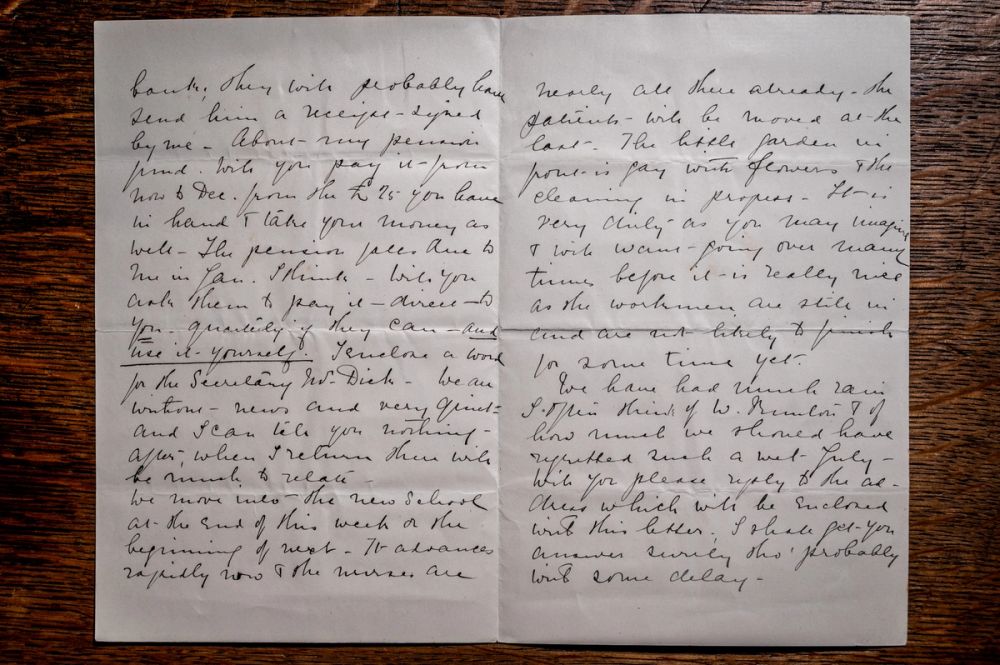 bank, they will probably have
send him a receipt signed
by me - About my pension
fund. Will you pay it from
now to Dec. from the £25 you have
in hand & take your money as
well - The pension falls due to
me in Jan. I think - Will you
ask them to pay it - direct to
you - quarterly if they can - and
use it yourself. I enclose a word
for the Secretary Mr. Dick - We are
without news and very quiet
and I can tell you nothing -
after, when I return there will
be much to relate -
We move into the new School
at the end of this week or the
beginning of next - It advances
rapidly now & the nurses are
nearly all there already - the
patients will be moved at the
last. The little garden in
front is gay with flowers & the
cleaning in progress - It is
very dirty as you may imagine
& will want going over many
times before it is really nice
as the workmen are still in
and are not likely to finish
for some time yet.
We have had much rain
I often think of W. & of
how much we should have
regretted such a wet July -
Will you please reply to the ad-
dress which will be enclosed
with this letter. I shall get you
answer surely tho' probably
with some delay -